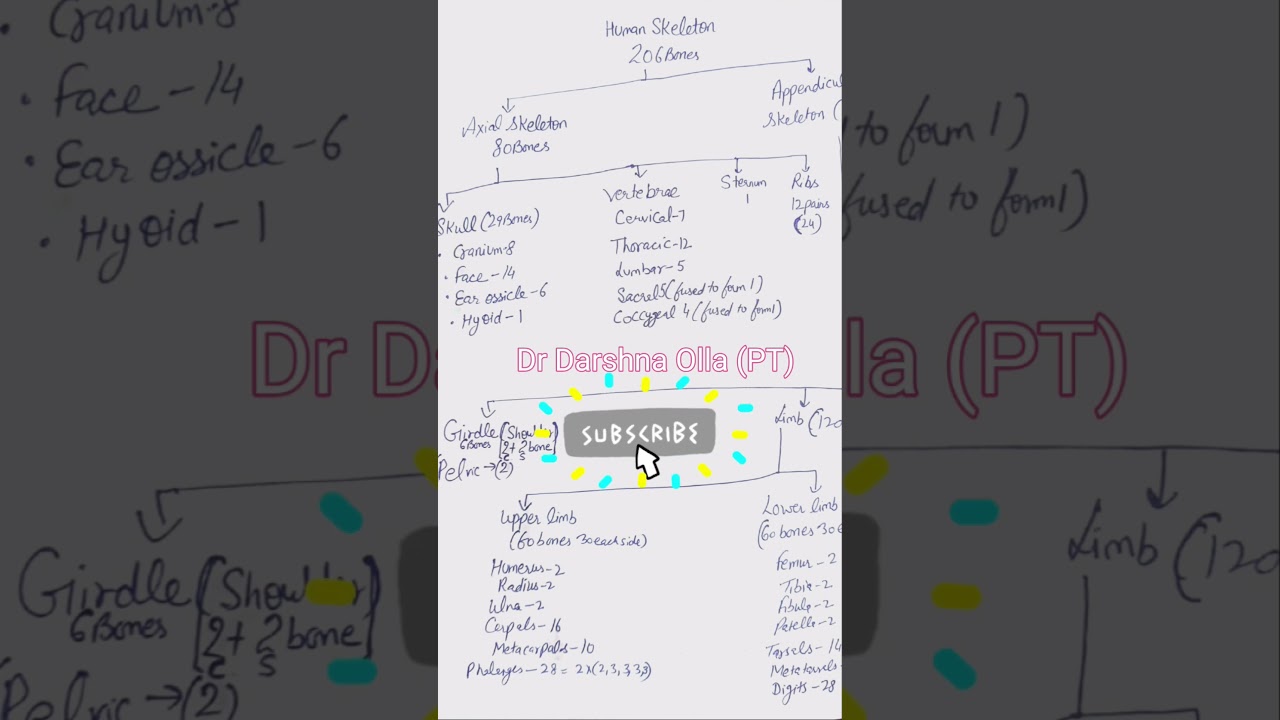 Human Skeleton
206 Bones
Axial Skeleton
80 Bones
Appendicul
Skeleton (
Skull (29 Bones)
• Cranium-8
• Face-14
• Ear ossicle-6
• Hyoid-1
Vertebrae
Cervical-7
Thoracic-12
Lumbar-5
Sacral 5 (fused to form 1)
Coccygeal 4 (fused to form 1)
Sternum
1
Ribs
12 pairs
(24)
Dr Darshna Olla (PT)
SUBSCRIBE
Girdle
6 Bones
2 + 2 bone
c s
Pelvic → (2)
Limb (120
Upper limb
(60 bones 30 each side)
Humerus-2
Radius-2
Ulna-2
Carpals-16
Metacarpals-10
Phalenges-28 = 2x(2,3,3,3,3)
Lower limb
(60 bones 30 e
Femur-2
Tibia-2
Fibula-2
Patella-2
Tarsels-14
Metatarsels-
Digits-28
Cranium-8
• Face-14
• Ear ossicle-6
• Hyoid-1
to form 1)
fused to form 1)
Dr Da
la (PT)
Girdle
6 Bones
2 + 2 bone
c s
Pelvic → (2)
Limb (120